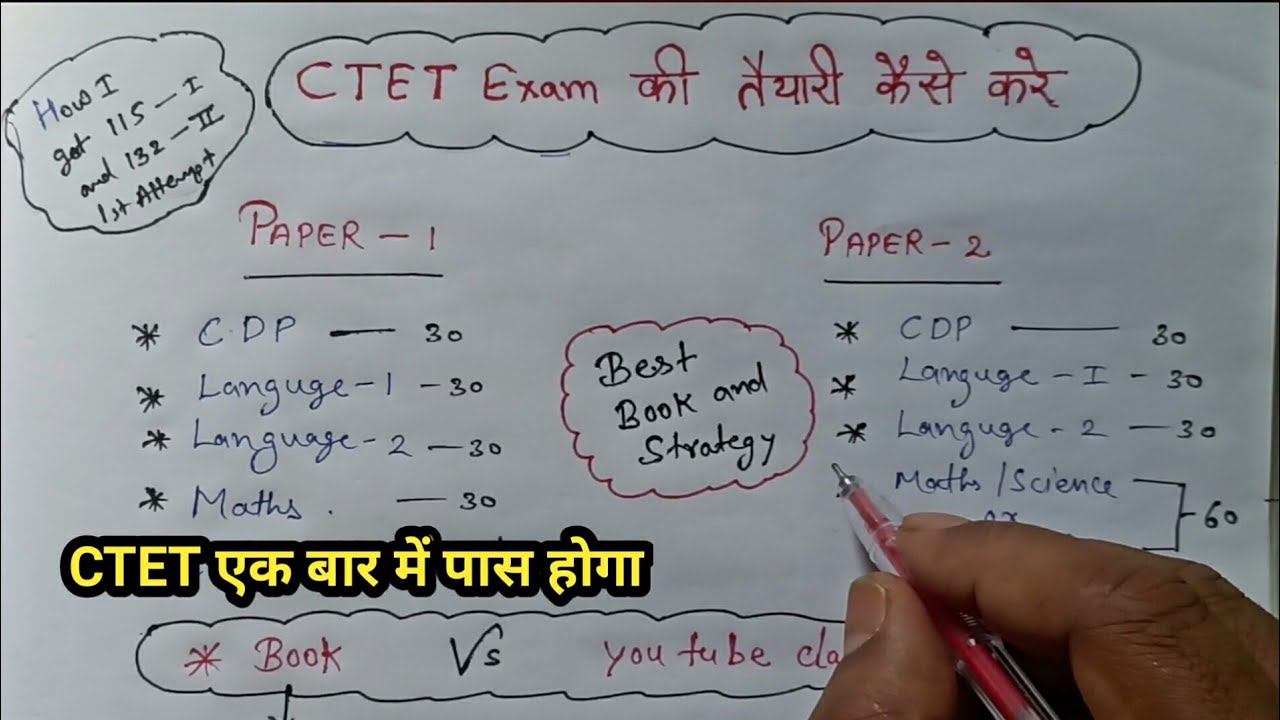 CTET Exam की तैयारी कैसे करे
How I
get 115 — I
and 132 — II
1st Attempt
PAPER - 1
* C.DP — 30
* Languge-1 - 30
* Language-2 — 30
* Maths. — 30
Best
Book and
Strategy
PAPER-2
* CDP — 30
* Languge - I - 30
* Languge - 2 — 30
Maths / Science
or
60
CTET एक बार में पास होगा
* Book Vs youtube